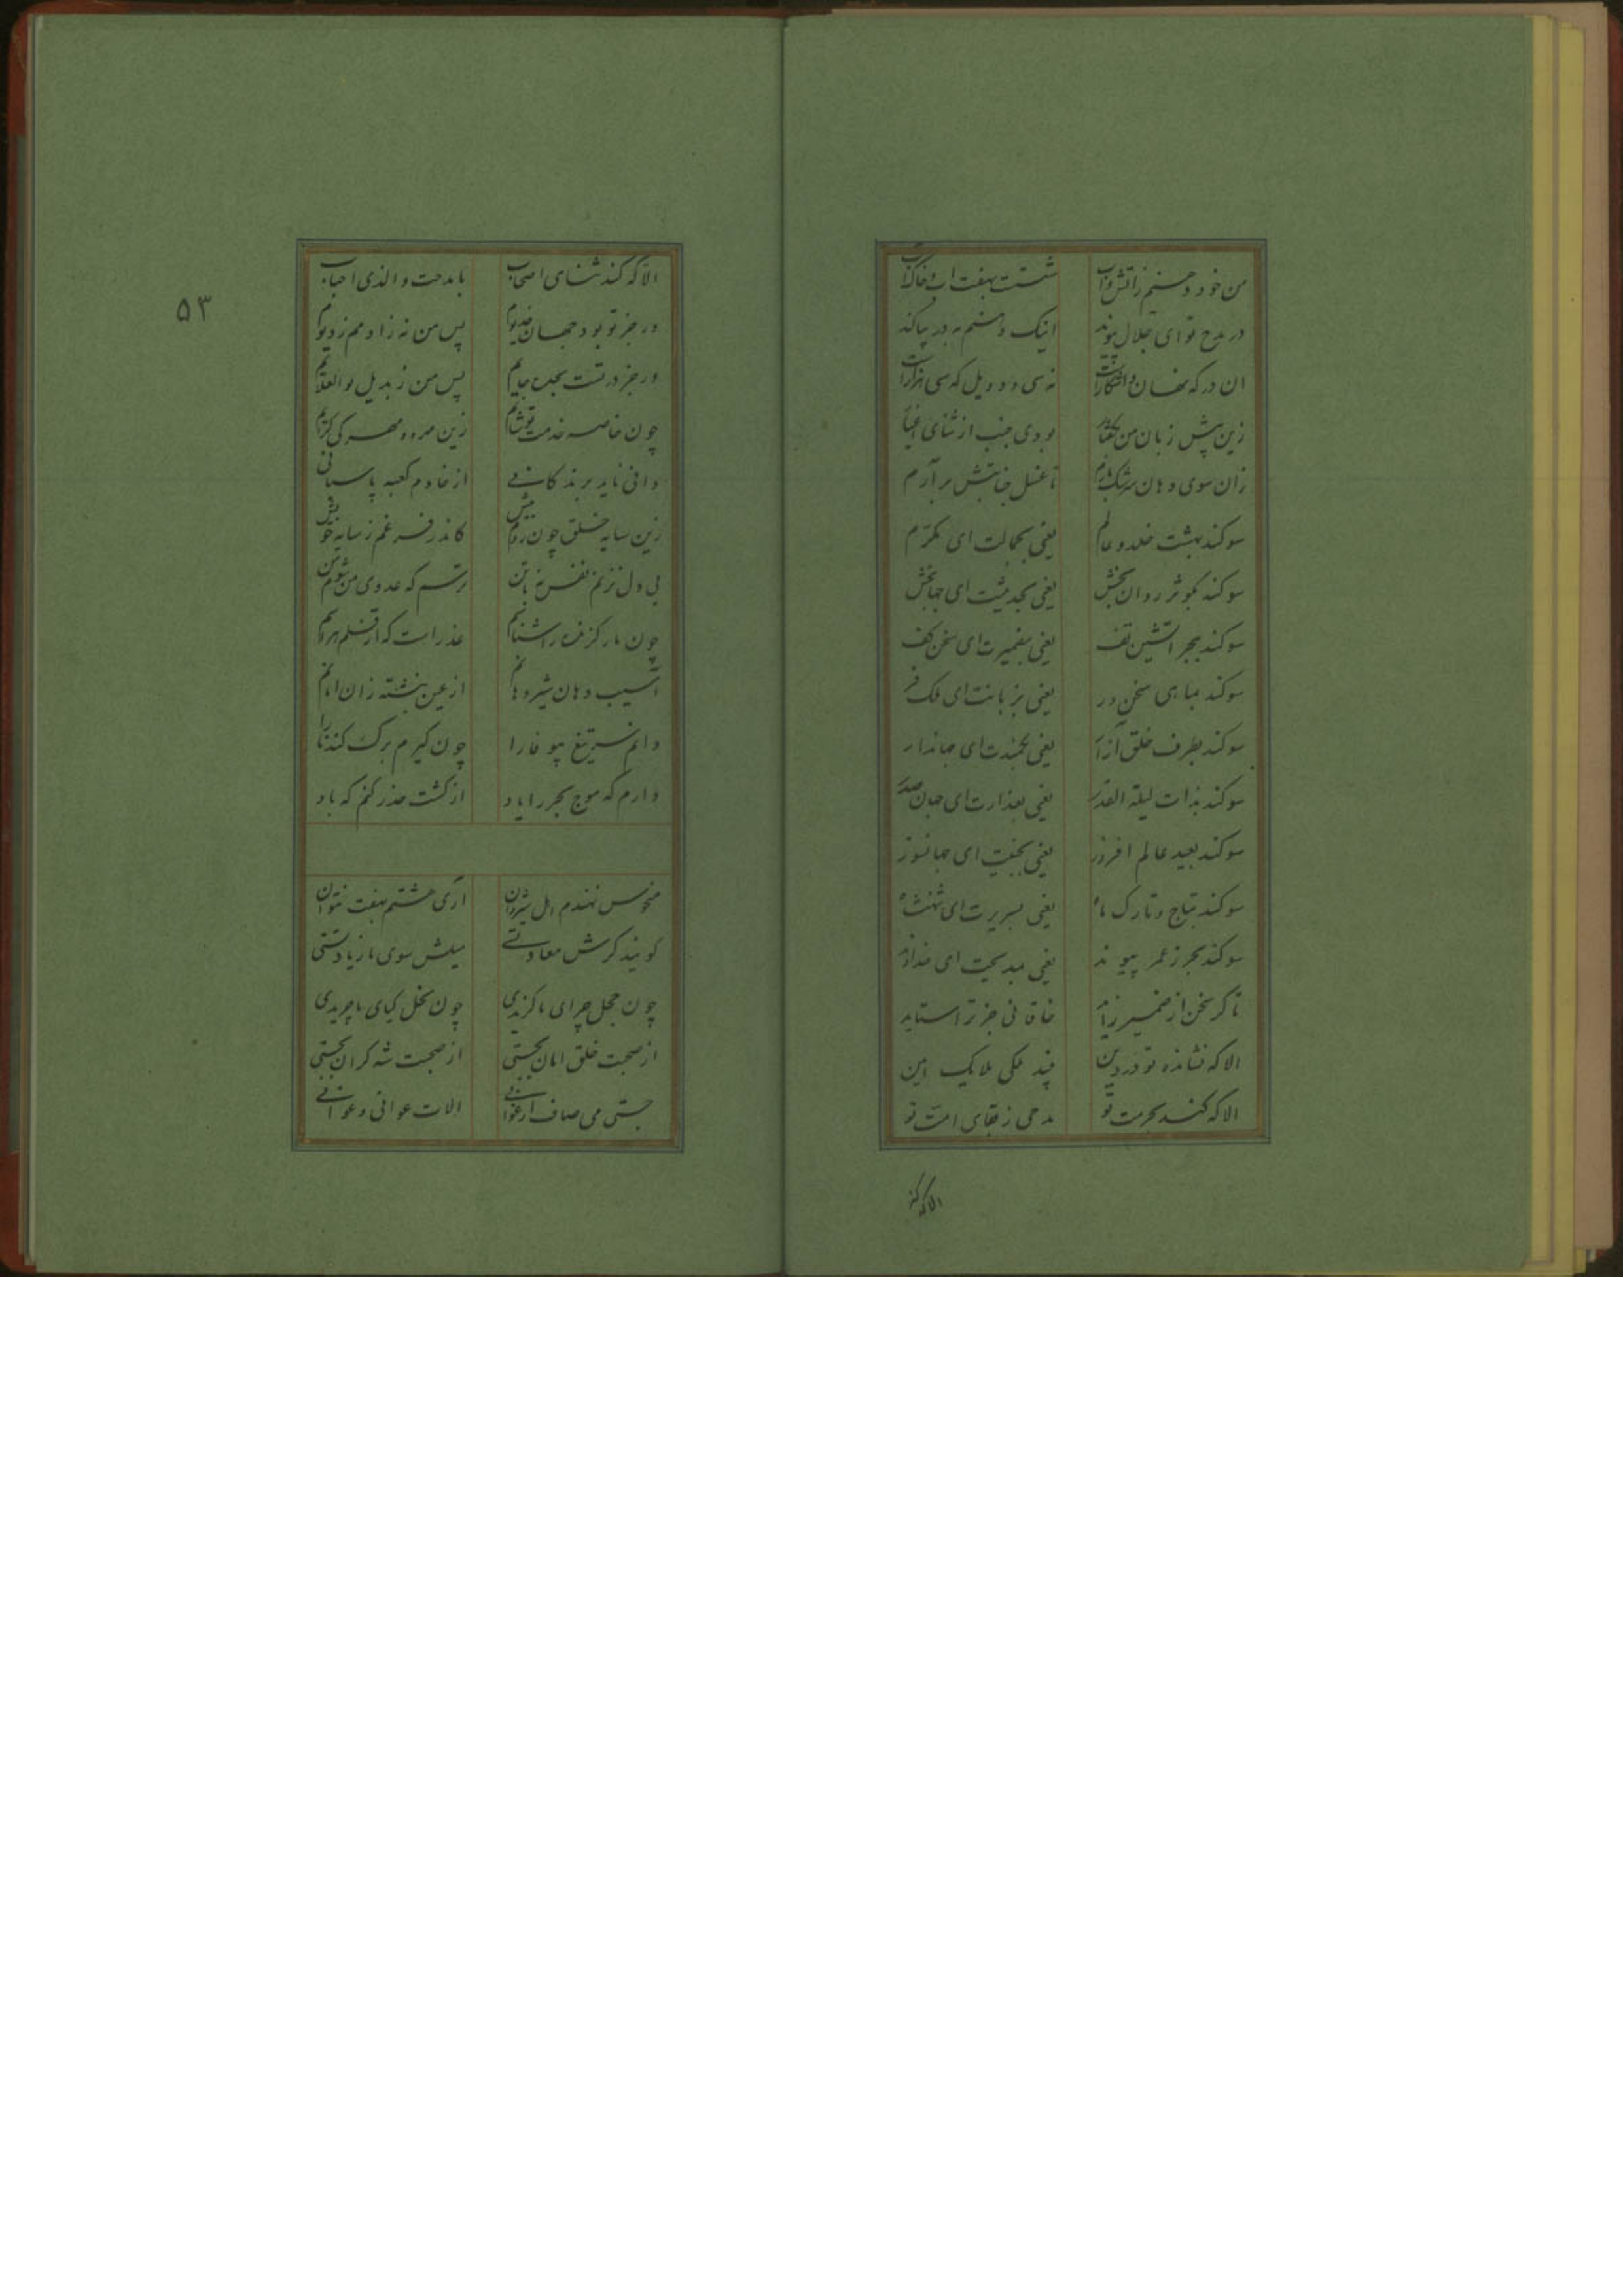 من خود دهنم ز آتش و آب شست بهفت آب و خاک
در مدح تو ای جلال پیوند اینک دهنم به در بیاکند
ان در که نهان و اشکار است نه سی و دو ویل که سی هزار است
زین پیش زبان من بگفتار بودی جنب از ثنای اغیار
زان سوی دهان سرشک بارم تا غسل جنابتش برآرم
سوکند ببهشت خلد و عالم یعنی بجمالت ای مکرم
سوکند بکوثر روان بخش یعنی بحدیثت ای جهانبخش
سوکند ببحر اتشین تف یعنی بضمیرت ای سخن کف
سوکند بماهی سخن ور یعنی بزبانت ای ملک فر
سوکند بطرف خلق آزار یعنی بکمندت ای جهاندار
سوکند بذات لیلة القدر یعنی بعذارت ای جهان صدر
سوکند بعید عالم افروز یعنی ای جهانسوز
سوکند بتاج و تارک ماه یعنی بسریرت ای شهنشاه
سوکند بحرز عمر پیوند یعنی بمدیحت ای خداوند
تا کر سخن از ضمیر زاید خاقانی جز ترا ستاید
الا که نشانده تو در دین چند ملکی ملایک این
الا که کند بحرمت تو مدحی ز بقای امت تو
الا که کند
۵۳
الا که کند ثنای اصحاب با مدحت والذی احباب
ور جز تو بود جهان خدیوم پس من نه ز ادمم ز دیوم
ور جز در تست بجیب جایم پس من ز بدیل بوالعلایم
چون خاصه خدمت تو شایم زین مرد و مهر کی کرایم
وانی ناید برندکانی از خادم کعبه پاسبانی
زین سایه خلق چون روم پیش کاندر فرغم ز سایه خویش
بی دل نزنم نفس نه با تن ترسم که عدوی من شود من
چون مار کزفسار اشنایم عذر است که از قلم هراسم
آسیب دهان شیر و هانم از عین نبشته زان امانم
دانم سر تیغ بیوفا را چون کیرم برک کندنا را
دارم که موج بحر را یاد از کشت حذر کنم که باد
منحوس نهندم اهل شروان آری هشتم بهفت نتوان
کویند کرش معاد تستی میلش سوی ما زیادتستی
چون جعل چرای ما کزیدی چون نحل کیای ما چریدی
از صحبت خلق امان بجستی از صحبت شه کران بجستی
جستی می صاف ارغوانی الات عوانی و عوانی